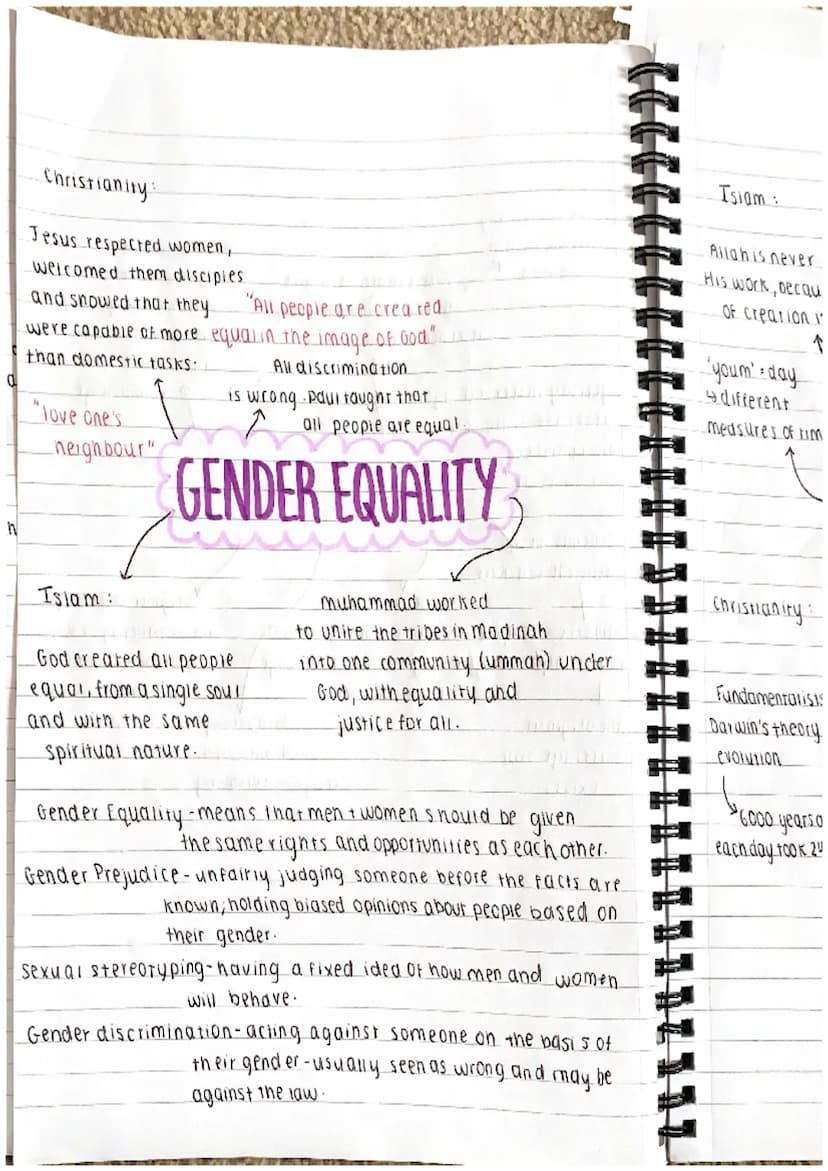 Christianity:
Jesus respected women,
welcomed them disciples
and showed that they
were capable of more
than domestic tasks.
"All people are created
equal in the image of God"
All discrimination
is wrong. Paul taught that
all people are equal.
"love one's
neighbour"
GENDER EQUALITY
Islam:
God created all people
equal, from a single soul
and with the same
spiritual nature.
Muhammad worked
to unite the tribes in Madinah
into one community (ummah) under
God, with equality and
justice for all.
Gender Equality - means that men + women should be given
the same rights and opportunities as each other.
Gender Prejudice - unfairly judging someone before the facts are
known, holding biased opinions about people based on
their gender.
Sexual stereotyping - having a fixed idea of how men and women
will behave.
Gender discrimination - acting against someone on the basis of
their gender - usually seen as wrong and may be
against the law.
Islam:
Allah is never
His work, becau
of creation i
'youm' = day
↳ different
measures of tim
Christianity:
Fundamentalists
Darwin's theory
evolution
6000 years o
each day took 24